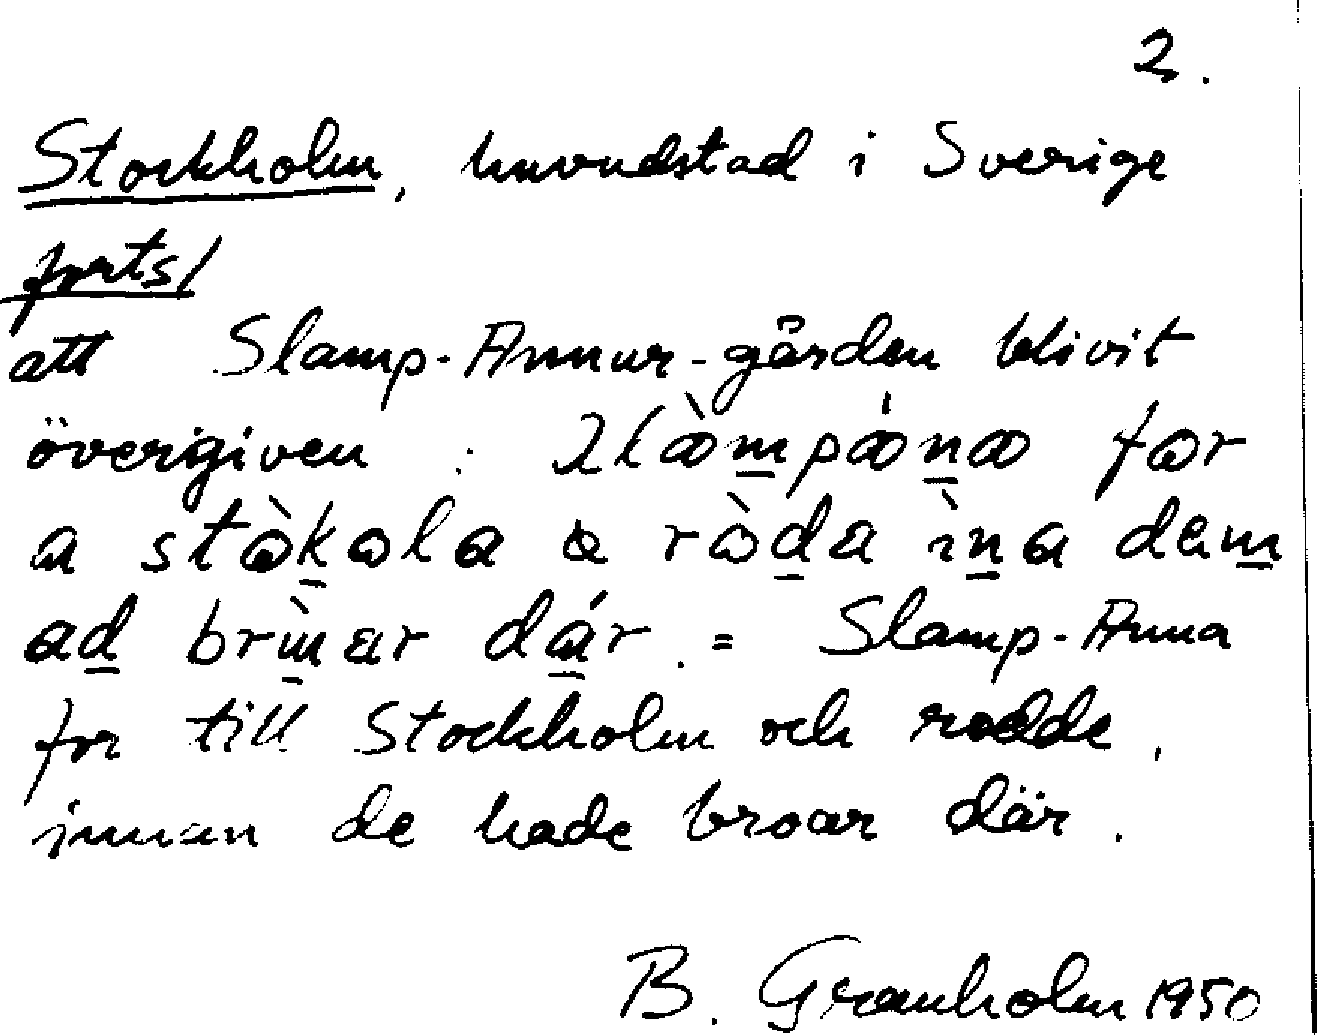 2.
Stockholm, huvudstad i Sverige
forts/
att Slamp-Annas-gården blivit
övergiven : for
a stòkola ò ròda ìna dem
ad bruar dár. = Slamp-Anna
for till Stockholm och rodde,
innan de hade broar där.
B. Granholm 1950